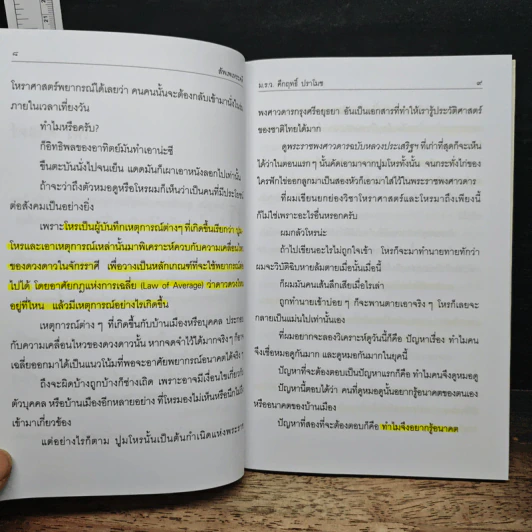 ๘
โหราศาสตร์พยากรณ์ได้เลยว่า คนคนนั้นจะต้องกลับเข้ามานั่งในร่ม
ภายในเวลาเที่ยงวัน
ทำไมหรือครับ?
ก็อิทธิพลของอาทิตย์มันทำเอาน่ะซี
ขืนตะบันนั่งไปจนเย็น แดดมันก็เผาเอาหนังลอกไปเท่านั้น
ถ้าจะว่าถึงตัวหมอดูหรือโหรผมก็เห็นว่าเป็นคนที่มีประโยชน์
ต่อสังคมเป็นอย่างยิ่ง
เพราะโหรเป็นผู้บันทึกเหตุการณ์ต่างๆ ที่เกิดขึ้นเรียกว่า ปูม
โหรและเอาเหตุการณ์เหล่านั้นมาพิเคราะห์ควบกับความเคลื่อนไหว
ของดวงดาวในจักรราศี เพื่อวางเป็นหลักเกณฑ์ที่จะใช้พยากรณ์ต่อ
ไปได้ โดยอาศัยกฎแห่งการเฉลี่ย (Law of Average) ว่าดาวดวงไหน
อยู่ที่ไหน แล้วมีเหตุการณ์อย่างไรเกิดขึ้น
เหตุการณ์ต่าง ๆ ที่เกิดขึ้นกับบ้านเมืองหรือบุคคล ประกอบ
กับความเคลื่อนไหวของดวงดาวนั้น หากจดจำไว้ได้มากจริงๆ ก็อาจ
เฉลี่ยออกมาได้เป็นแนวโน้มที่พอจะอาศัยพยากรณ์อนาคตได้จริงๆ
ถึงจะผิดบ้างถูกบ้างก็ช่างเถิด เพราะอาจมีเงื่อนไขเกี่ยวกับ
ตัวบุคคล หรือบ้านเมืองอีกหลายอย่าง ที่โหรมองไม่เห็นหรือนึกไม่ถึง
เข้ามาเกี่ยวข้อง
แต่อย่างไรก็ตาม ปูมโหรนั้นเป็นต้นกำเนิดแห่งพระราช
ม.ร.ว. คึกฤทธิ์ ปราโมช
๙
พงศาวดารกรุงศรีอยุธยา อันเป็นเอกสารที่ทำให้เรารู้ประวัติศาสตร์
ของชาติไทยได้มาก
ดูพระราชพงศาวดารฉบับหลวงประเสริฐฯ ที่เก่าที่สุดก็จะเห็น
ได้ว่าในตอนแรกๆ นั้นคัดเอามาจากปูมโหรทั้งนั้น จนกระทั่งไก่ของ
ใครฟักไข่ออกลูกมาเป็นสองหัวก็เอามาใส่ไว้ในพระราชพงศาวดาร
ที่ผมเขียนยกย่องวิชาโหราศาสตร์และโหรมาถึงเพียงนี้
ก็ไม่ใช่เพราะอะไรอื่นหรอกครับ
ผมกลัวโหรน่ะ
ถ้าไปเขียนอะไรไม่ถูกใจเข้า โหรก็จะมาทำนายทายทักว่า
ผมจะวิบัติฉิบหายล้มตายเมื่อนั้นเมื่อนี้
ก็ผมมันคนเส้นลึกเสียเมื่อไรเล่า
ถูกทำนายเข้าบ่อย ๆ ก็จะพานตายเอาจริง ๆ โหรก็เลยจะ
กลายเป็นแม่นไปเท่านั้นเอง
ที่ผมอยากจะลองวิเคราะห์ดูวันนี้ก็คือ ปัญหาเรื่อง ทำไมคน
จึงเชื่อหมอดูกันมาก และดูหมอกันมากในยุคนี้
ปัญหาที่จะต้องตอบเป็นปัญหาแรกก็คือ ทำไมคนจึงดูหมอดู
ปัญหานี้ตอบได้ว่า คนที่ดูหมอดูนั้นอยากรู้อนาคตของตนเอง
หรืออนาคตของบ้านเมือง
ปัญหาที่สองที่จะต้องตอบก็คือ ทำไมจึงอยากรู้อนาคต